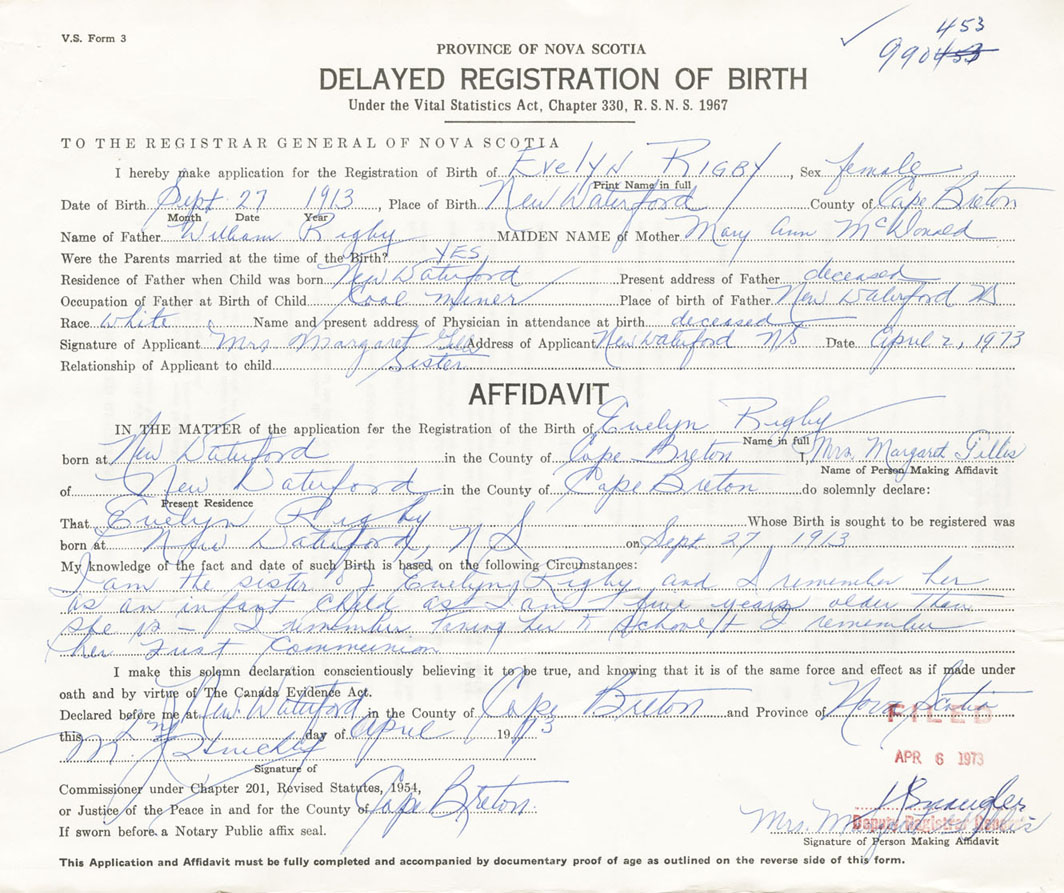 V.S. Form 3
453
990 453
PROVINCE OF NOVA SCOTIA
DELAYED REGISTRATION OF BIRTH
Under the Vital Statistics Act, Chapter 330, R. S. N. S. 1967
TO THE REGISTRAR GENERAL OF NOVA SCOTIA
I hereby make application for the Registration of Birth of Evelyn RIGBY, Sex female
Print Name in full
Date of Birth Sept 27 1913, Place of Birth New Waterford County of Cape Breton
Month Date Year
Name of Father William Rigby MAIDEN NAME of Mother Mary Ann McDonald
Were the Parents married at the time of the Birth? YES
Residence of Father when Child was born New Waterford Present address of Father deceased
Occupation of Father at Birth of Child Coal Miner Place of birth of Father New Waterford NS
Race White Name and present address of Physician in attendance at birth deceased
Signature of Applicant Mrs Margaret Gillis Address of Applicant New Waterford NS Date April 2, 1973
Relationship of Applicant to child Sister
AFFIDAVIT
IN THE MATTER of the application for the Registration of the Birth of Evelyn Rigby
Name in full
born at New Waterford in the County of Cape Breton I, Mrs. Margaret Gillis
Name of Person Making Affidavit
of New Waterford in the County of Cape Breton do solemnly declare:
Present Residence
That Evelyn Rigby Whose Birth is sought to be registered was
born at New Waterford, NS on Sept 27 1913
My knowledge of the fact and date of such Birth is based on the following Circumstances:
I am the sister of Evelyn Rigby and I remember her
as an infant child as I am five years older than
she is – I remember taking her to school & I remember
her First Communion
I make this solemn declaration conscientiously believing it to be true, and knowing that it is of the same force and effect as if made under
oath and by virtue of The Canada Evidence Act.
Declared before me at New Waterford in the County of Cape Breton and Province of Nova Scotia
this 2nd day of April 1973
FILED
APR 6 1973
M.
Signature of
Commissioner under Chapter 201, Revised Statutes, 1954,
or Justice of the Peace in and for the County of Cape Breton
If sworn before a Notary Public affix seal.
Deputy Registrar General
Mrs. Margaret Gillis
Signature of Person Making Affidavit
This Application and Affidavit must be fully completed and accompanied by documentary proof of age as outlined on the reverse side of this form.